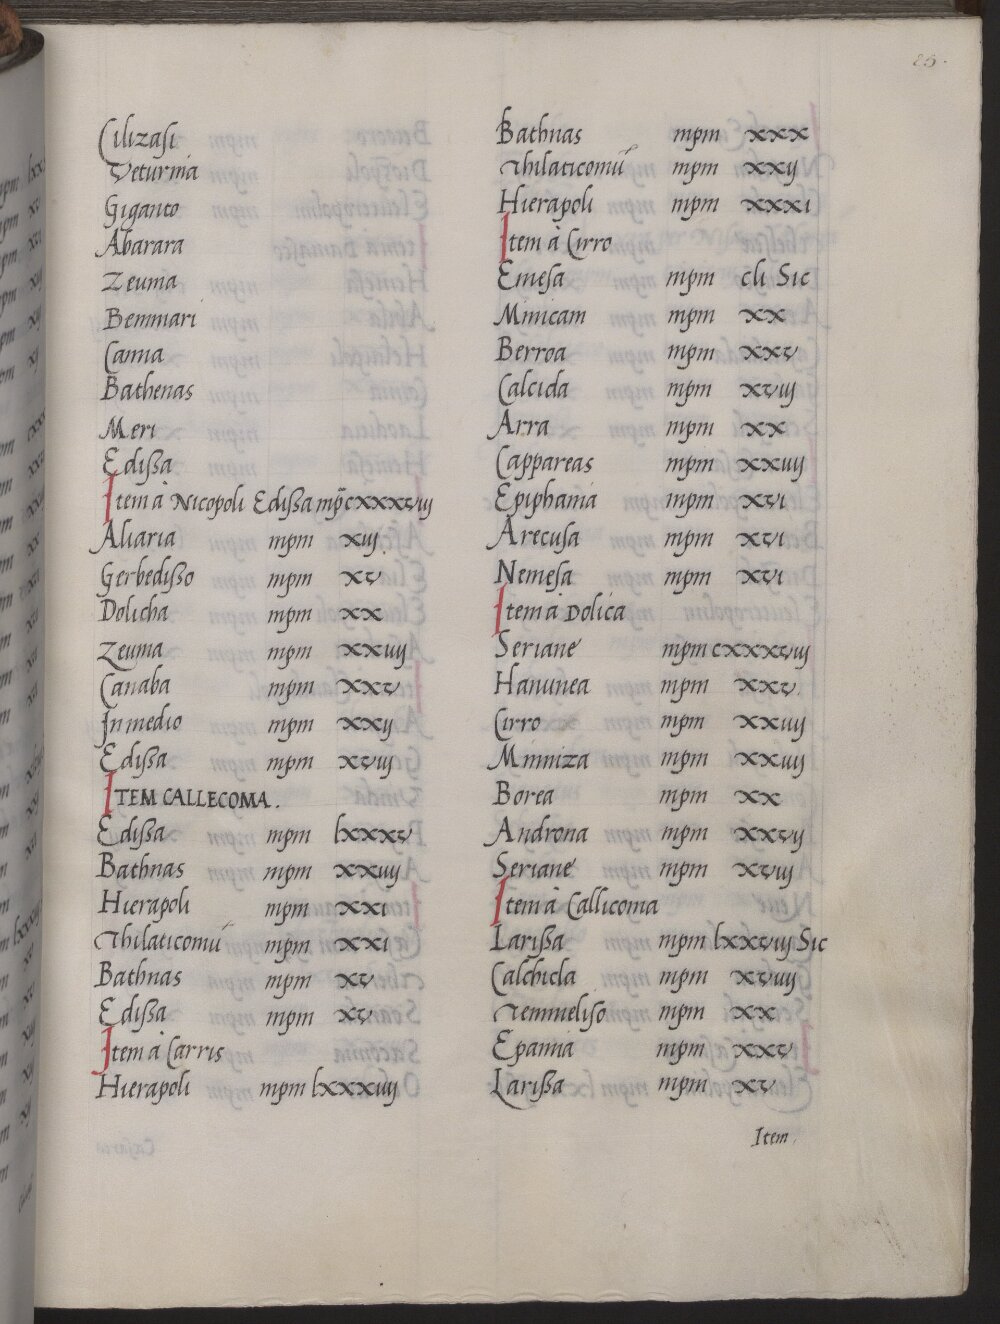 85.
Cilizasi
Veturnia
Giganto
Abarara
Zeuma
Bemmari
Canna
Bathenas
Meri
Edissa
Item à Nicopoli Edissa mp̃ cxxxvij
Aliaria mpm xiij.
Gerbedisso mpm xv
Dolicha mpm xx
Zeuma mpm xxiiij
Canaba mpm xxv
In medio mpm xxij
Edissa mpm xviij
ITEM CALLECOMA.
Edissa mpm lxxxv
Bathnas mpm xxiiij
Hierapoli mpm xxi
Thilaticomū mpm xxi
Bathnas mpm xv
Edissa mpm xv
Item à Carris
Hierapoli mpm lxxxiij
Bathnas mpm xxx
Thilaticomū mpm xxij
Hierapoli mpm xxxi
Item à Cirro
Emesa mpm cli Sic
Minicam mpm xx
Berroa mpm xxv
Calcida mpm xviij
Arra mpm xx
Cappareas mpm xxiij
Epiphania mpm xvi
Arecusa mpm xvi
Nemesa mpm xvi
Item à Dolica
Seriane mpm cxxxviij
Hanunea mpm xxv
Cirro mpm xxiiij
Minniza mpm xxiiij
Borea mpm xx
Androna mpm xxvij
Seriane mpm xviij
Item à Callicoma
Larissa mpm lxxviiij Sic
Calchida mpm xviij
Temmeliso mpm xx
Epamia mpm xxv
Larissa mpm xv
Item